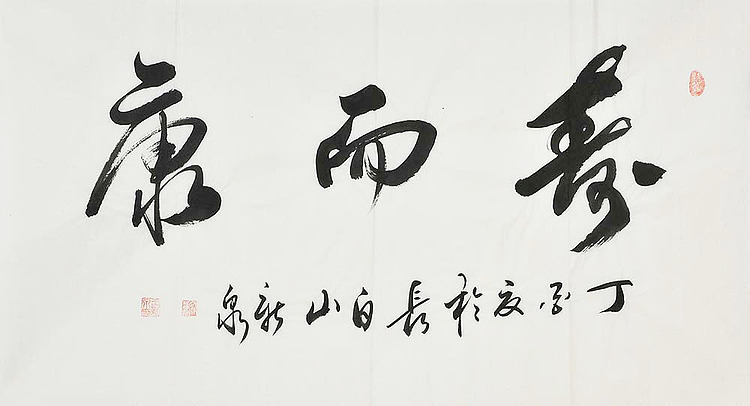 寿而康
丁酉夏於長白山新泉